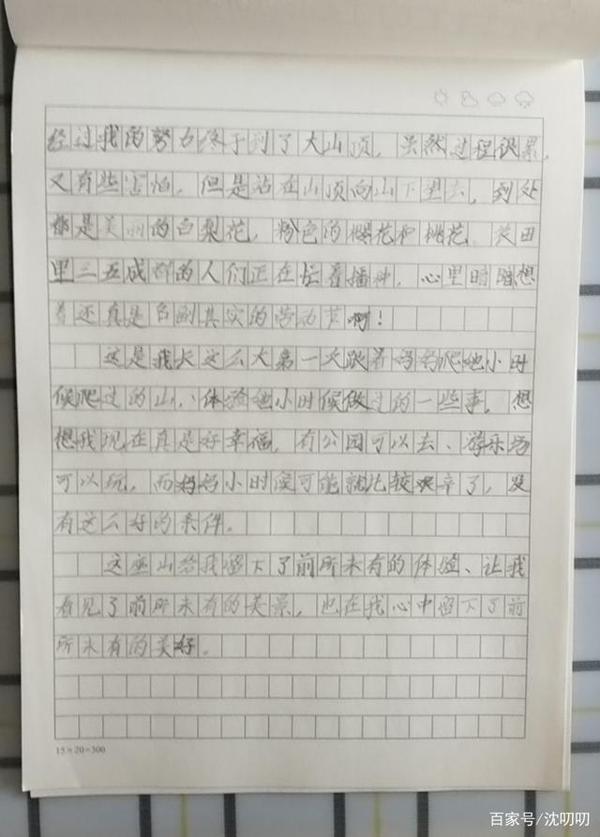 经过我的努力终于到了大山顶，虽然过程很累，
又有些害怕，但是站在山顶向山下望去，到处
都是美丽的白梨花，粉色的樱花和桃花。
里三五成群的人们正在忙着播种，心里暗暗想
着还真是名副其实的劳动节啊！
这是我长这么大第一天跟着妈妈爬她小时
候爬过的山，体验她小时候做过的一些事，想
想我现在真是好幸福，有公园可以去、游乐场
可以玩，而妈妈小时候可能就比较艰辛了，没
有这么好的条件。
这座山给我留下了前所未有的体验、让我
看见了前所未有的美景，也在我心中留下了前
所未有的美好。
15×20=300
百家号/沈叨叨